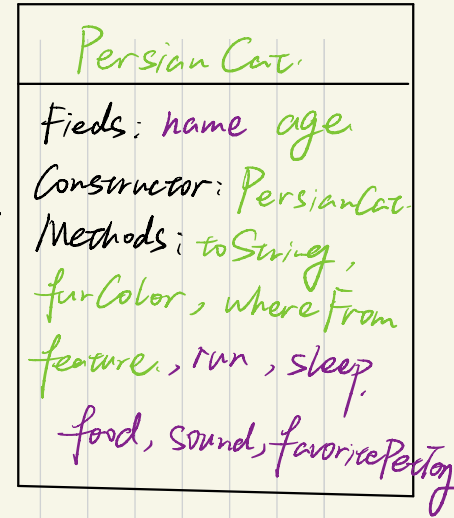 Persian Cat.
Fieds: name age
Constructor: PersianCat.
Methods: toString,
furColor, whereFrom
feature, run, sleep,
food, sound, favoritePetToy